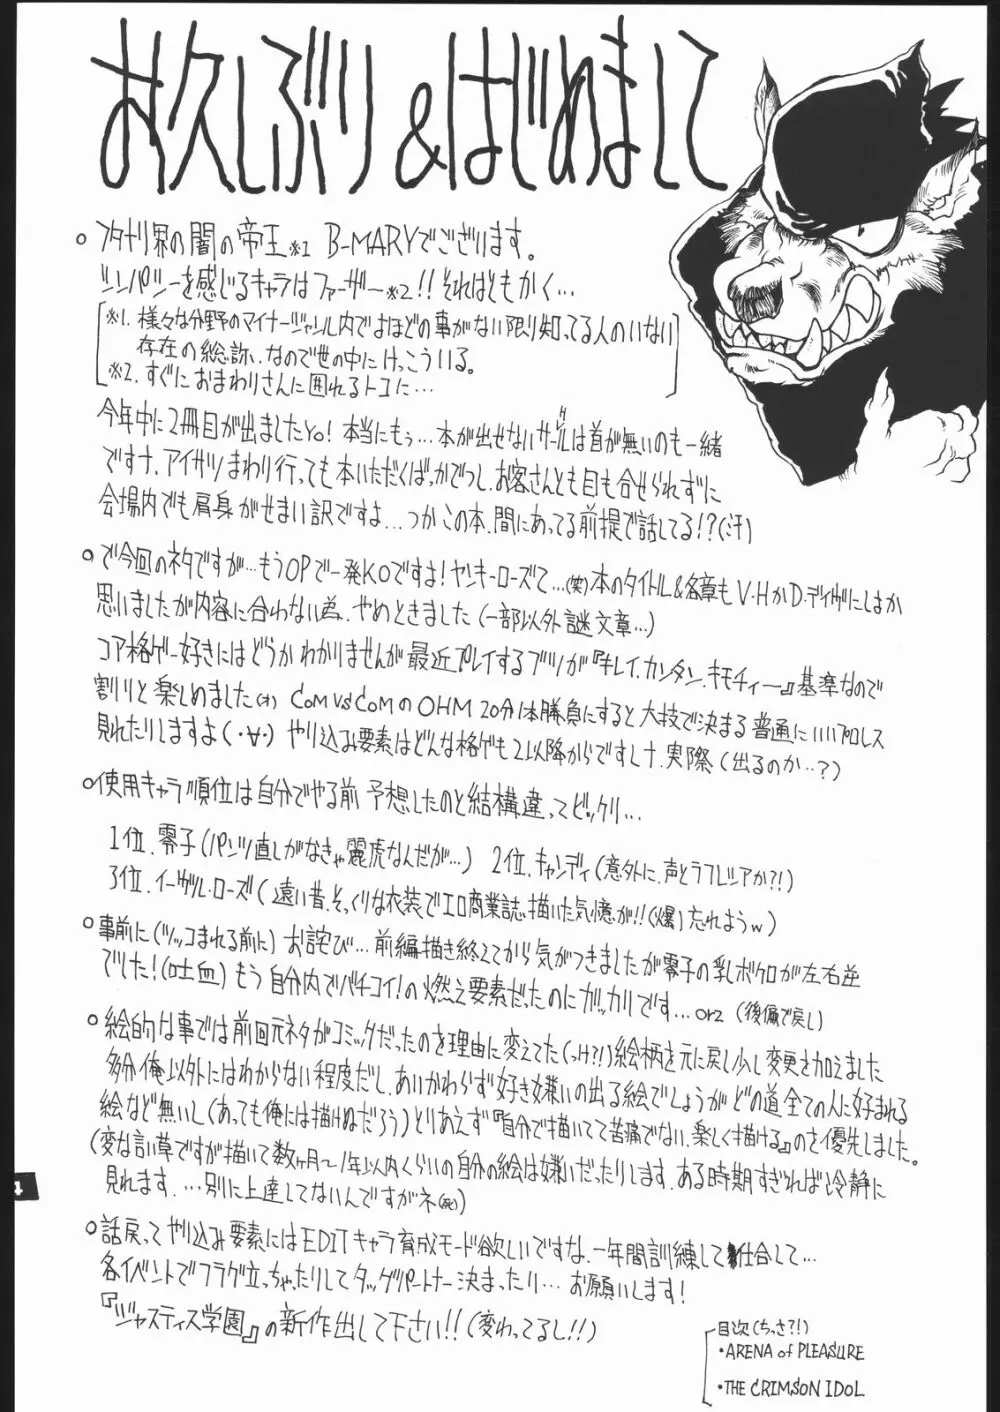 お久しぶり&はじめまして
。フタナリ界の闇の帝王※1 B-MARYでございます。
シンパシーを感じるキャラはファーザー※2!!それはともかく…
※1.様々な分野のマイナージャンル内でよほどの事がない限り知ってる人のいない
存在の総称、なので世の中にけっこういる。
※2.すぐにおまわりさんに囲れるトコに…
今年中に2冊目が出ましたyo!本当にもぅ…本が出せないサークルは首が無いのも一緒
ですナ.アイサツまわり行っても本いただくばっかでつし.お客さんとも目も合せられずに
会場内でも肩身がせまい訳ですよ…つかこの本、間にあってる前提で話してる!?(汗)
。で今回のネタですが…もうOPで一発KOですよ!ヤンキーローズて…(笑)本のタイトル&各章もV・HかD・デイヴにしよか
思いましたが内容に合わない為、やめときました(一部以外謎文章…)
コア格ゲー好きにはどうかわかりませんが最近プレイするブツが『キレイ.カンタン.キモチィー』基準なので
割りと楽しめました(オ) COM VS COMのOHM 20分1本勝負にすると大技で決まる普通にいいプロレス
見れたりしますよ(・∀・) やり込み要素はどんな格ゲも2以降からですしナ.実際(出るのか…?)
。使用キャラ順位は自分でやる前予想したのと結構違ってビックリ…
1位.零子(パンツ直しがなきゃ麗虎なんだが…) 2位.キャンディ(意外に、声とラフレシアか?!)
3位.イーヴル・ローズ(遠い昔、そっくりな衣装でエロ商業誌描いた気憶が!!(爆)忘れようw)
。事前に(ツッコまれる前に)お詫び…前編描き終えてから気がつきましたが零子の乳ボクロが左右逆
でした!(吐血)もう自分内でバチコイ!の燃え要素だったのにガッカリです…orz (後偏で戻し)
。絵的な事では前回元ネタがコミックだったのを理由に変えてた(っけ?!)絵柄を元に戻し少し変更を加えました
多分俺以外にはわからない程度だし、あいかわらず好き嫌いの出る絵でしょうがどの道全ての人に好まれる
絵など無いし(あっても俺には描けぬだろう)とりあえず『自分で描いてて苦痛でない、楽しく描ける』のを優先しました。
(変な言い草ですが描いて数ヶ月〜1年以内くらいの自分の絵は嫌いだったりします.ある時期すぎれば冷静に
見れます.…別に上達してないんですがネ(死))
。話戻ってやり込み要素にはEDITキャラ育成モード欲しいですな、一年間訓練して仕合して…
各イベントでフラグ立っちゃったりしてタッグパートナー決まったり…お願いします!
『ジャスティス学園』の新作出して下さい!!(変わってるし!!)
目次(ちっさ?!)
・ARENA of PLEASURE
・THE CRIMSON IDOL
4